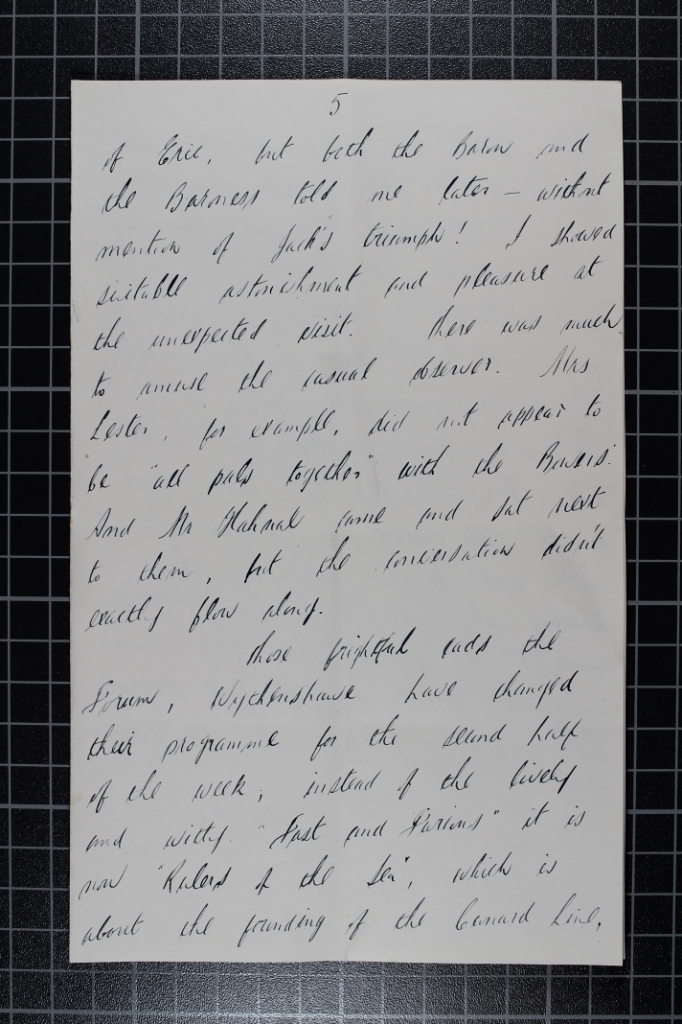 5
of Eric, but both the Baron and
the Baroness told me later – without
mention of Jack's triumph! I showed
suitable astonishment and pleasure at
the unexpected visit. There was much
to amuse the casual observer. Mrs
Lester, for example, did not appear to
be "all pals together" with the Bowers.
And Mr Hahnal came and sat next
to them, but the conversation didn't
exactly flow along.
Those frightful cads the
Forum, Wythenshawe have changed
their programme for the second half
of the week, instead of the lively
and witty "Fast and Furious" it is
now "Rulers of the Sea", which is
about the founding of the Cunard Line,